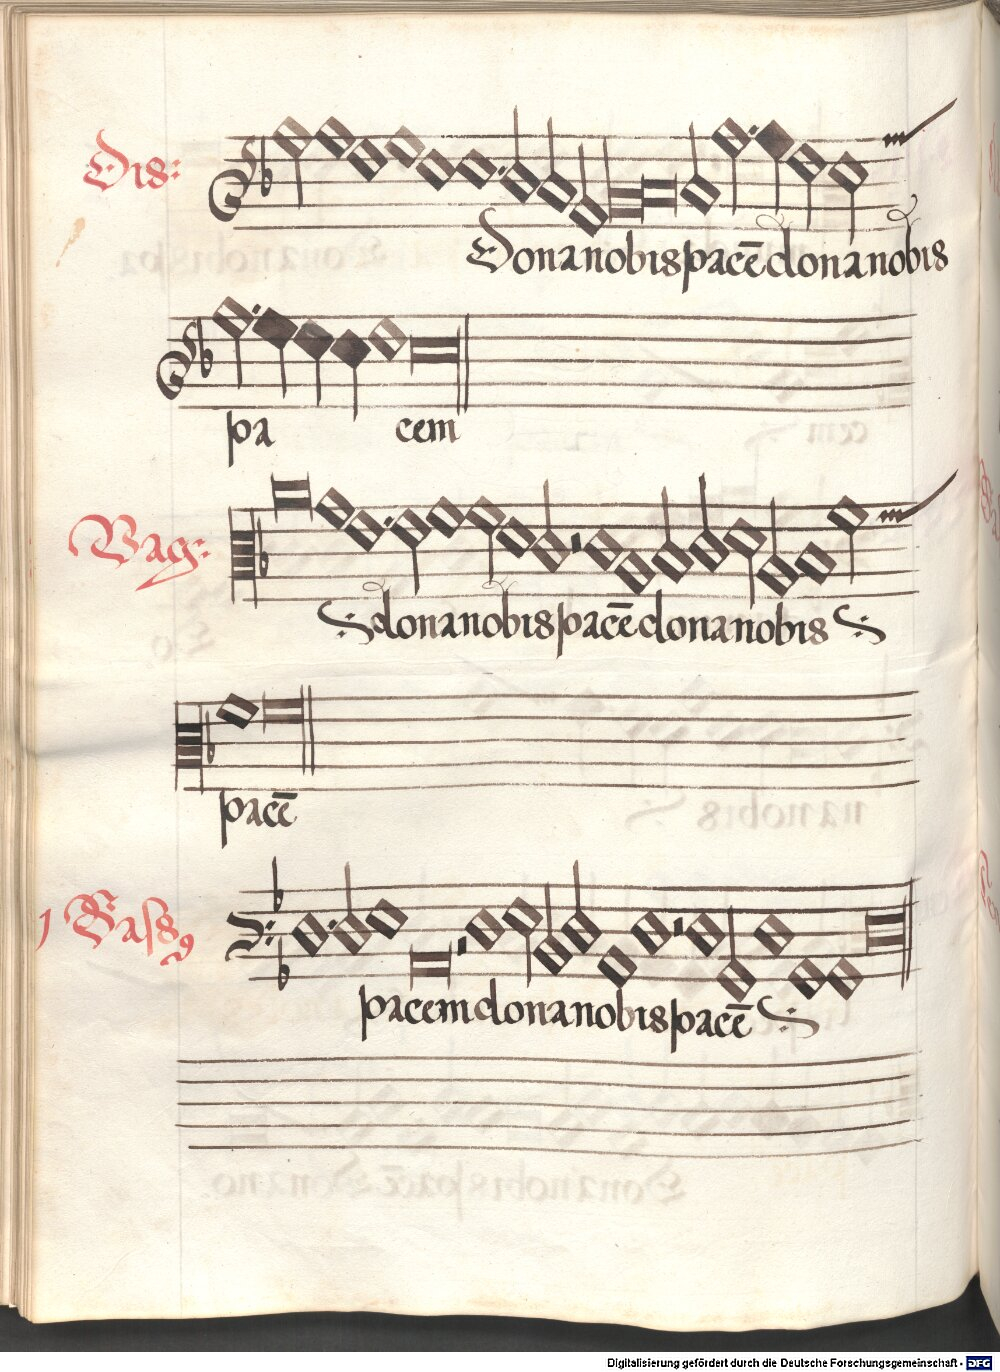 Dis:
Donanobispacēdonanobis
pa cem
Vag:
donanobispacēdonanobis
pacē
1 Bass9
pacemdonanobispacē
Digitalisierung gefördert durch die Deutsche Forschungsgemeinschaft - DFG